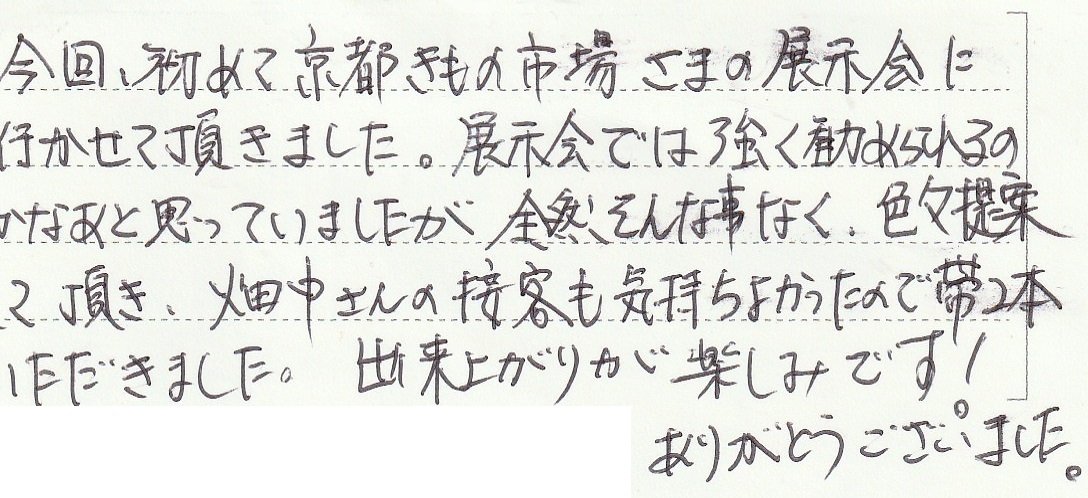 今回、初めて京都きもの市場さまの展示会に
行かせて頂きました。展示会では強く勧められるの
かなあと思っていましたが全然そんな事なく、色々提案
て頂き、畑中さんの接客も気持ちよかったので帯2本
いただきました。出来上がりが楽しみです!
ありがとうございました。